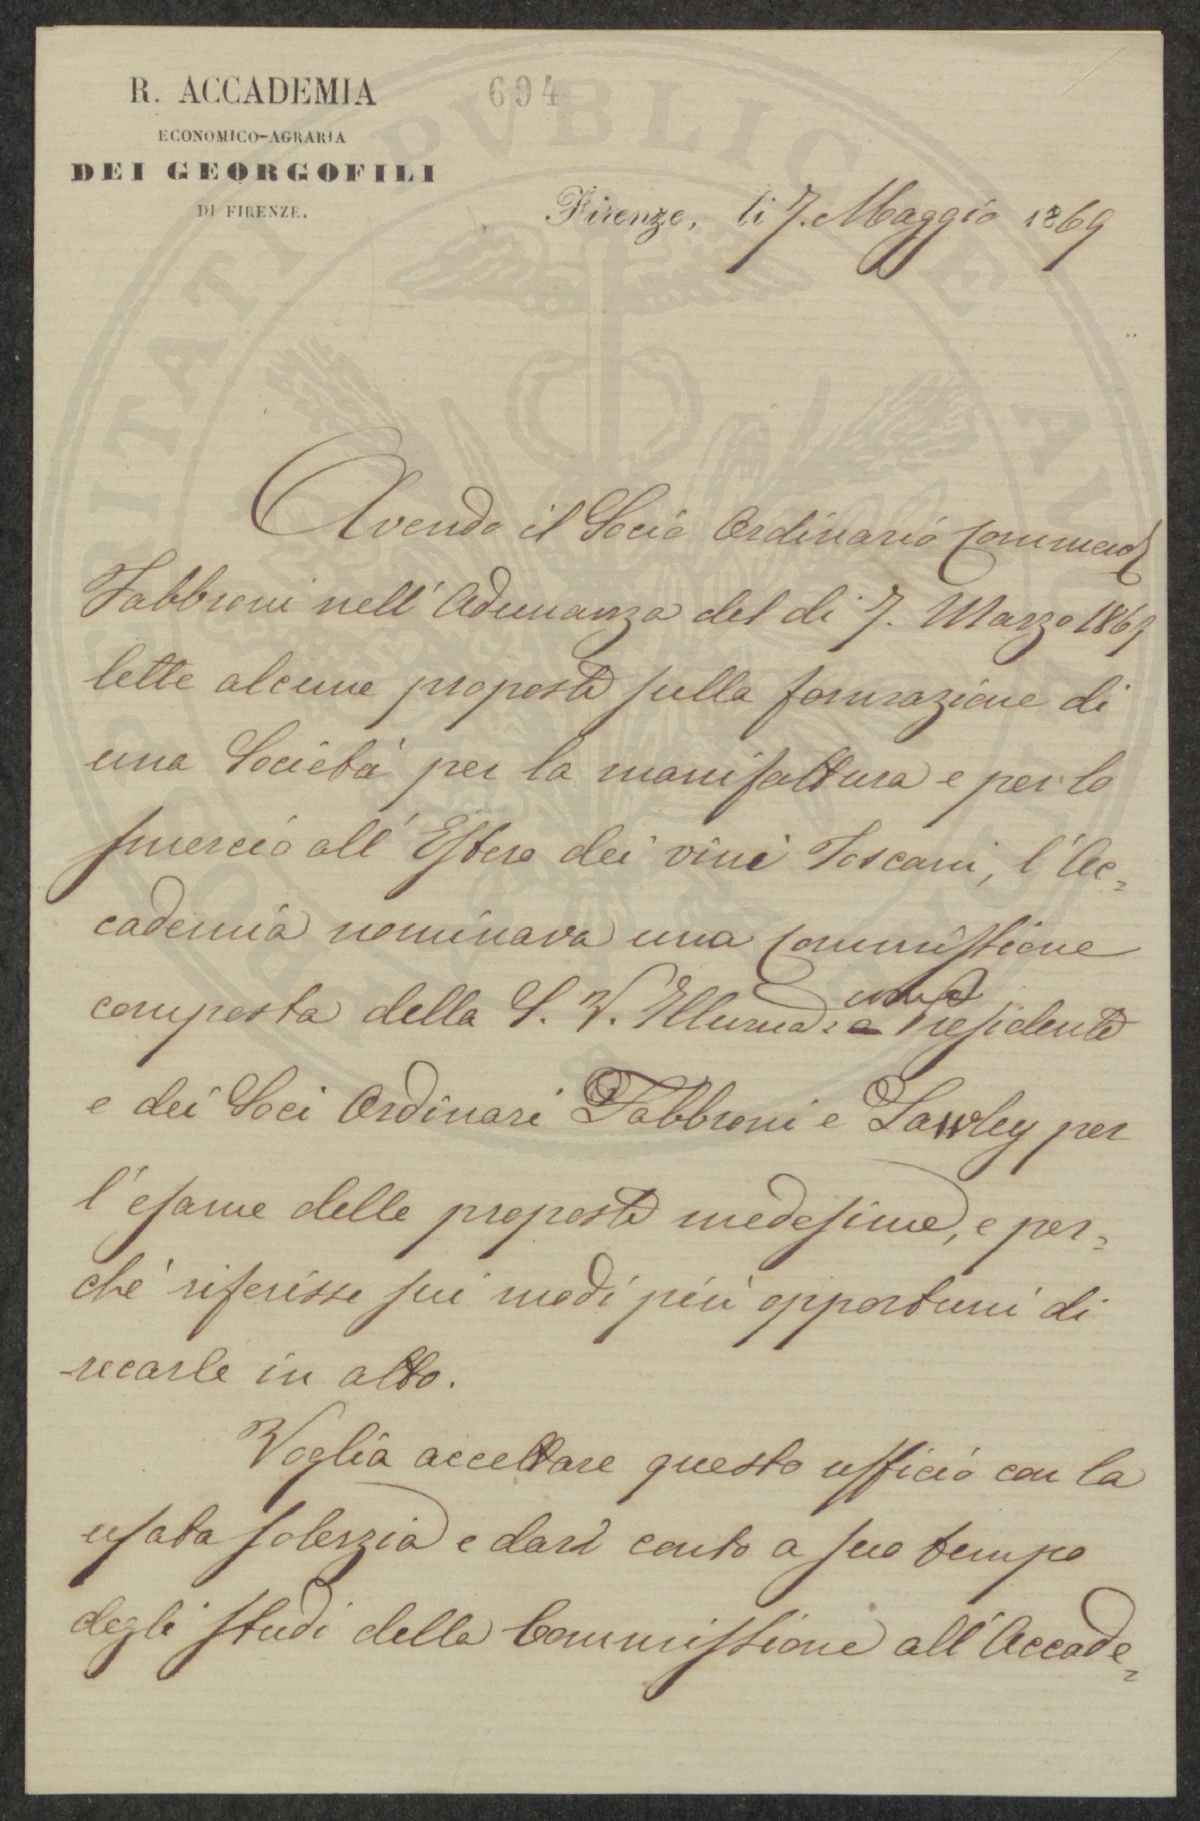 R. ACCADEMIA
ECONOMICO-AGRARIA
DEI GEORGOFILI
DI FIRENZE.
694
Firenze, li 7. Maggio 1869
Avendo il Socio Ordinario
Fabbroni nell'Adunanza del di 7. Marzo 1869
lette alcune proposte sulla formazione di
una Società per la manifattura e per lo
smercio all'Estero dei vini Toscani, l'Ac=
cademia nominava una Commissione
composta della S. V. come Presidente
e dei Soci Ordinari Fabbroni e Lawley per
l'esame delle proposte medesime, e per=
ché riferisse sui modi più opportuni di
recarle in atto.
Voglia accettare questo ufficio con la
usata solerzia e dare conto a suo tempo
degli studi della Commissione all'Accade=
PROSPERITATI PVBLICAE AVGENDAE